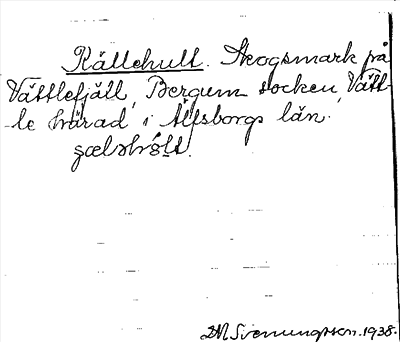 Källehult. Skogsmark på
Vättlefjäll, Bergum socken, Vätt-
le härad i Älfsborgs län.
Svenungsson. 1938.